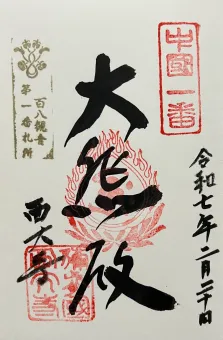 中國一番
百八観音
第一番札所
大悲殿
西大寺
令和七年二月二十日